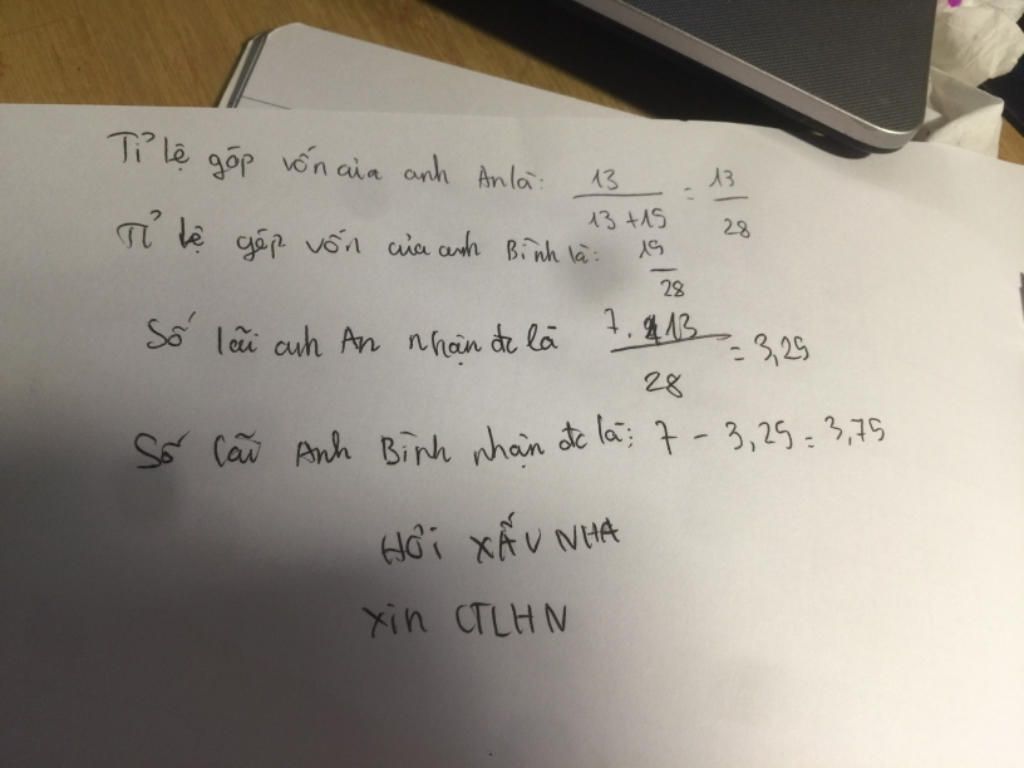 Tỉ lệ góp vốn của anh An là: 13 / 13 + 15 = 13 / 28
Tỉ lệ góp vốn của anh Bình là: 15 / 28
Số lãi anh An nhận đc là 7 . 13 / 28 = 3,25
Số lãi Anh Bình nhận đc là: 7 - 3,25 = 3,75
HƠI XẤU NHA
Xin CTLHN